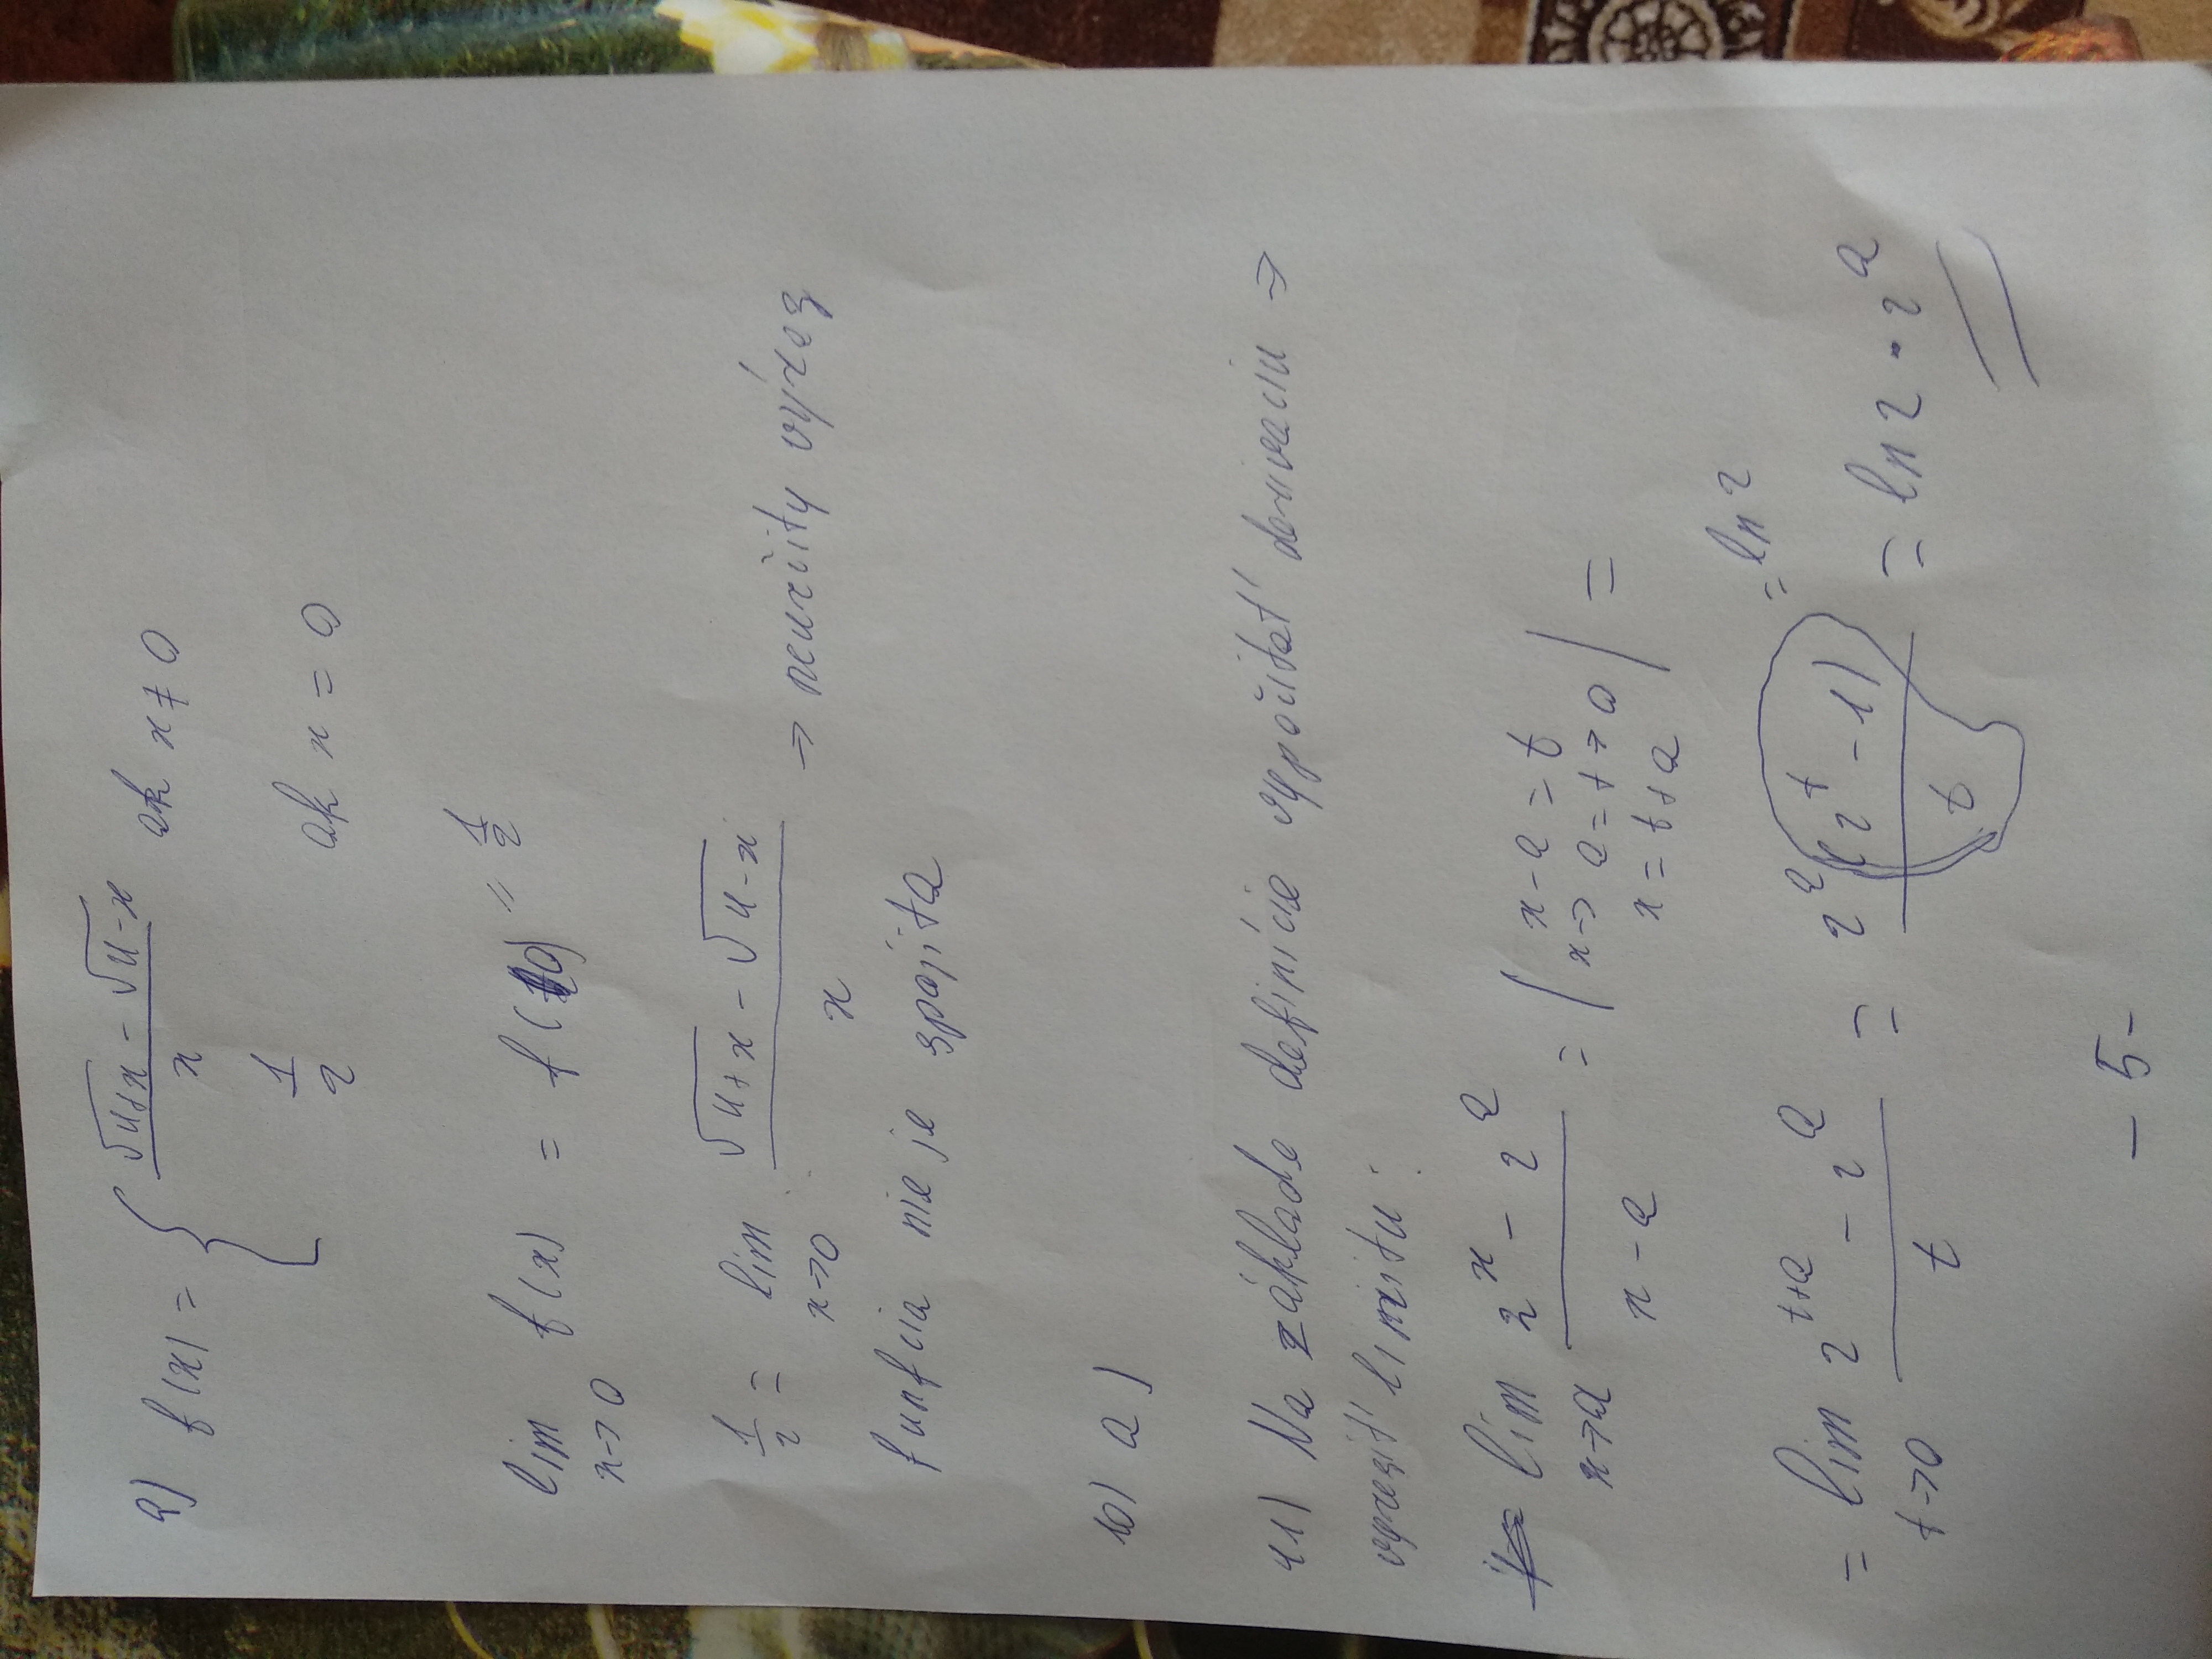 9) f(x) = { (√(4+x) - √(4-x)) / x ak x ≠ 0
1/2 ak x = 0
lim x→0 f(x) = f(0) = 1/2
1/2 = lim x→0 (√(4+x) - √(4-x)) / x ⇒ neurčitý výraz
funkcia nie je spojitá
10) a)
11) Na základe definície vypočítať deriváciu ⇒
vyriešiť limitu:
lim x→a (2^x - 2^a) / (x - a) = | x - a = t
x → a = t → 0
x = t + a | =
= lim t→0 (2^(t+a) - 2^a) / t = 2^a (2^t - 1) / t = ln 2 · 2^a
= ln 2
- 5 -